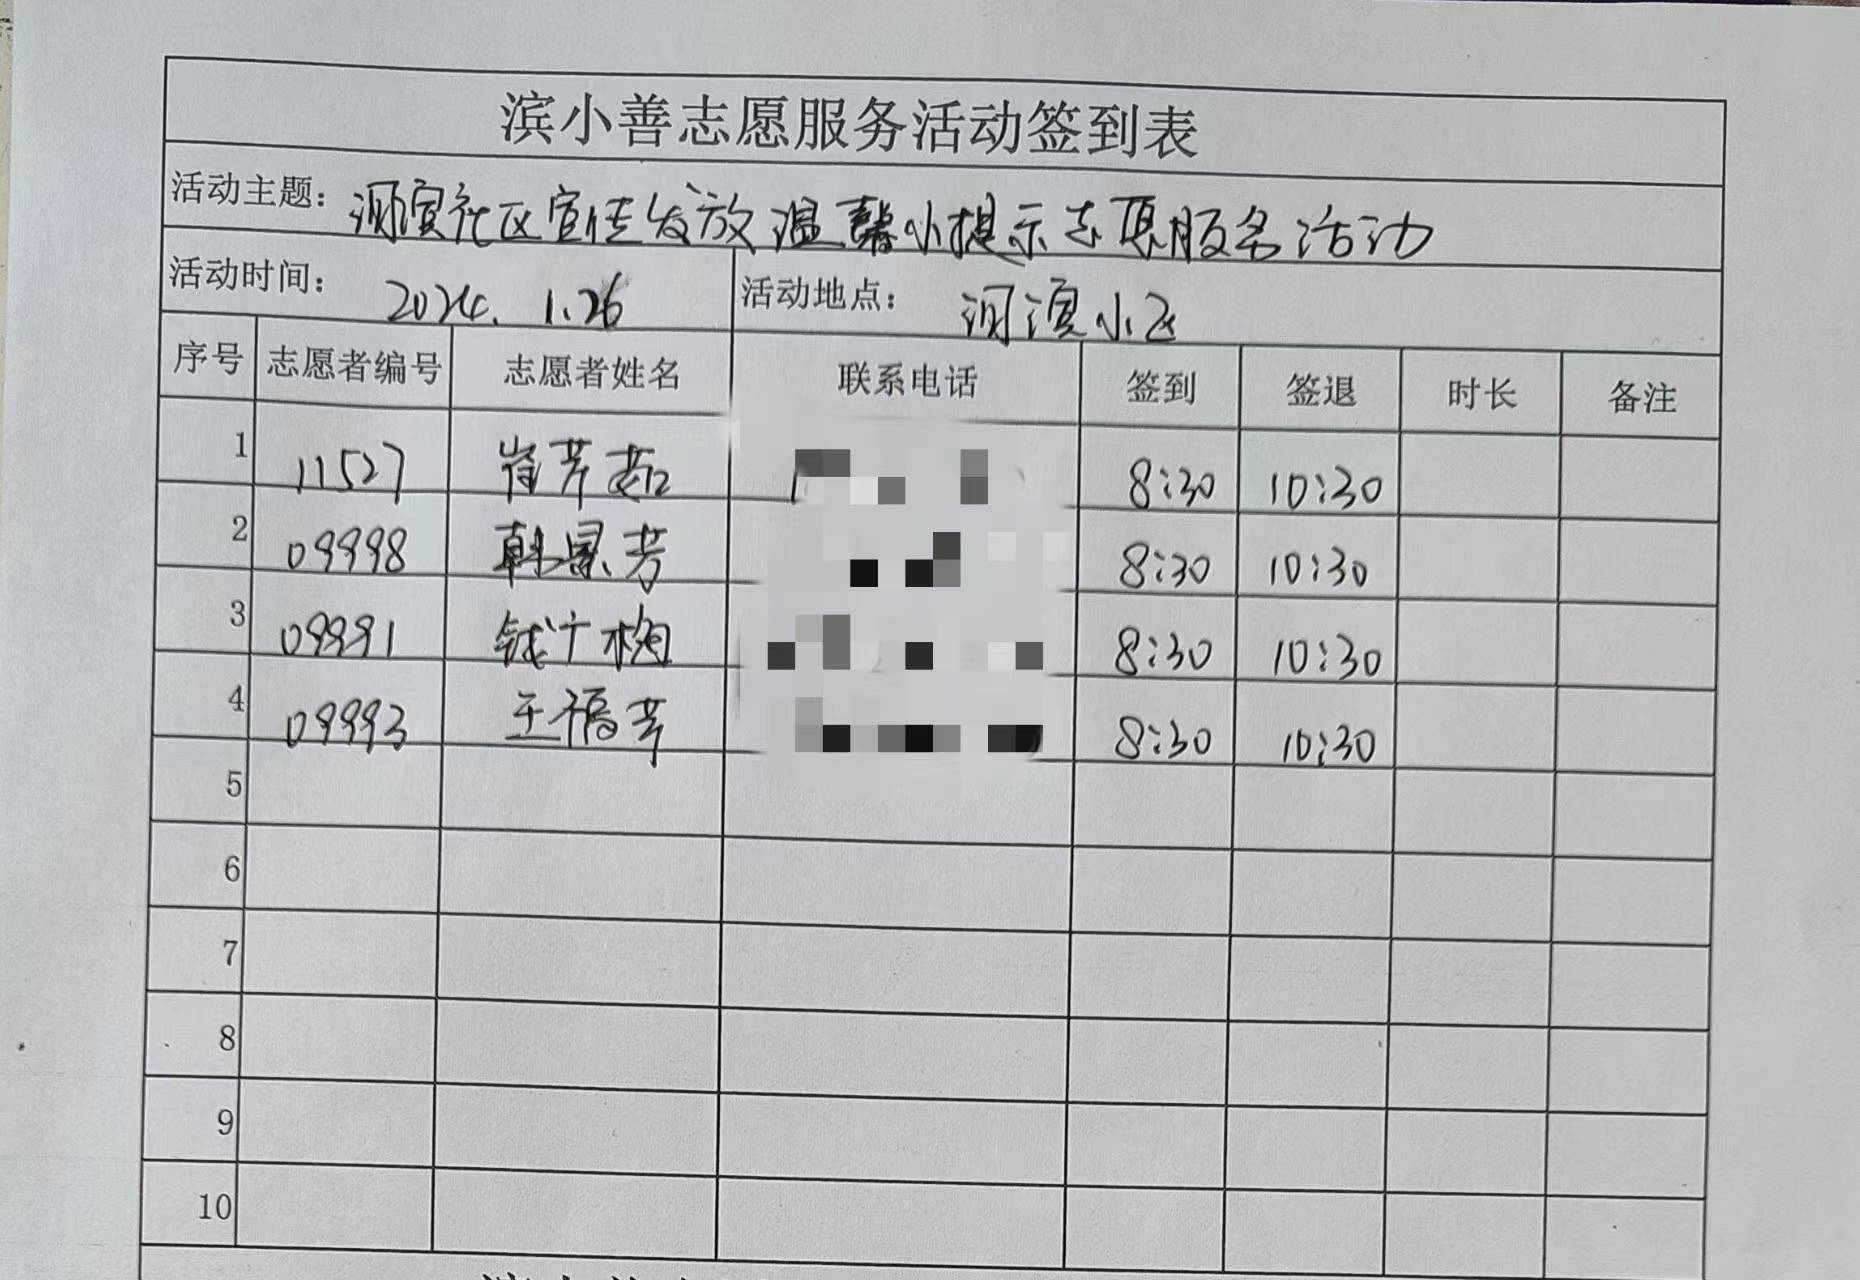 滨小善志愿服务活动签到表
活动主题：河滨社区宣传发放温馨小提示志愿服务活动
活动时间：2024.1.26 活动地点：河滨小区
序号 志愿者编号 志愿者姓名 联系电话 签到 签退 时长 备注
1 11527 8:30 10:30
2 09998 韩凤芳 8:30 10:30
3 09991 钱广梅 8:30 10:30
4 09993 王福芹 8:30 10:30
5
6
7
8
9
10